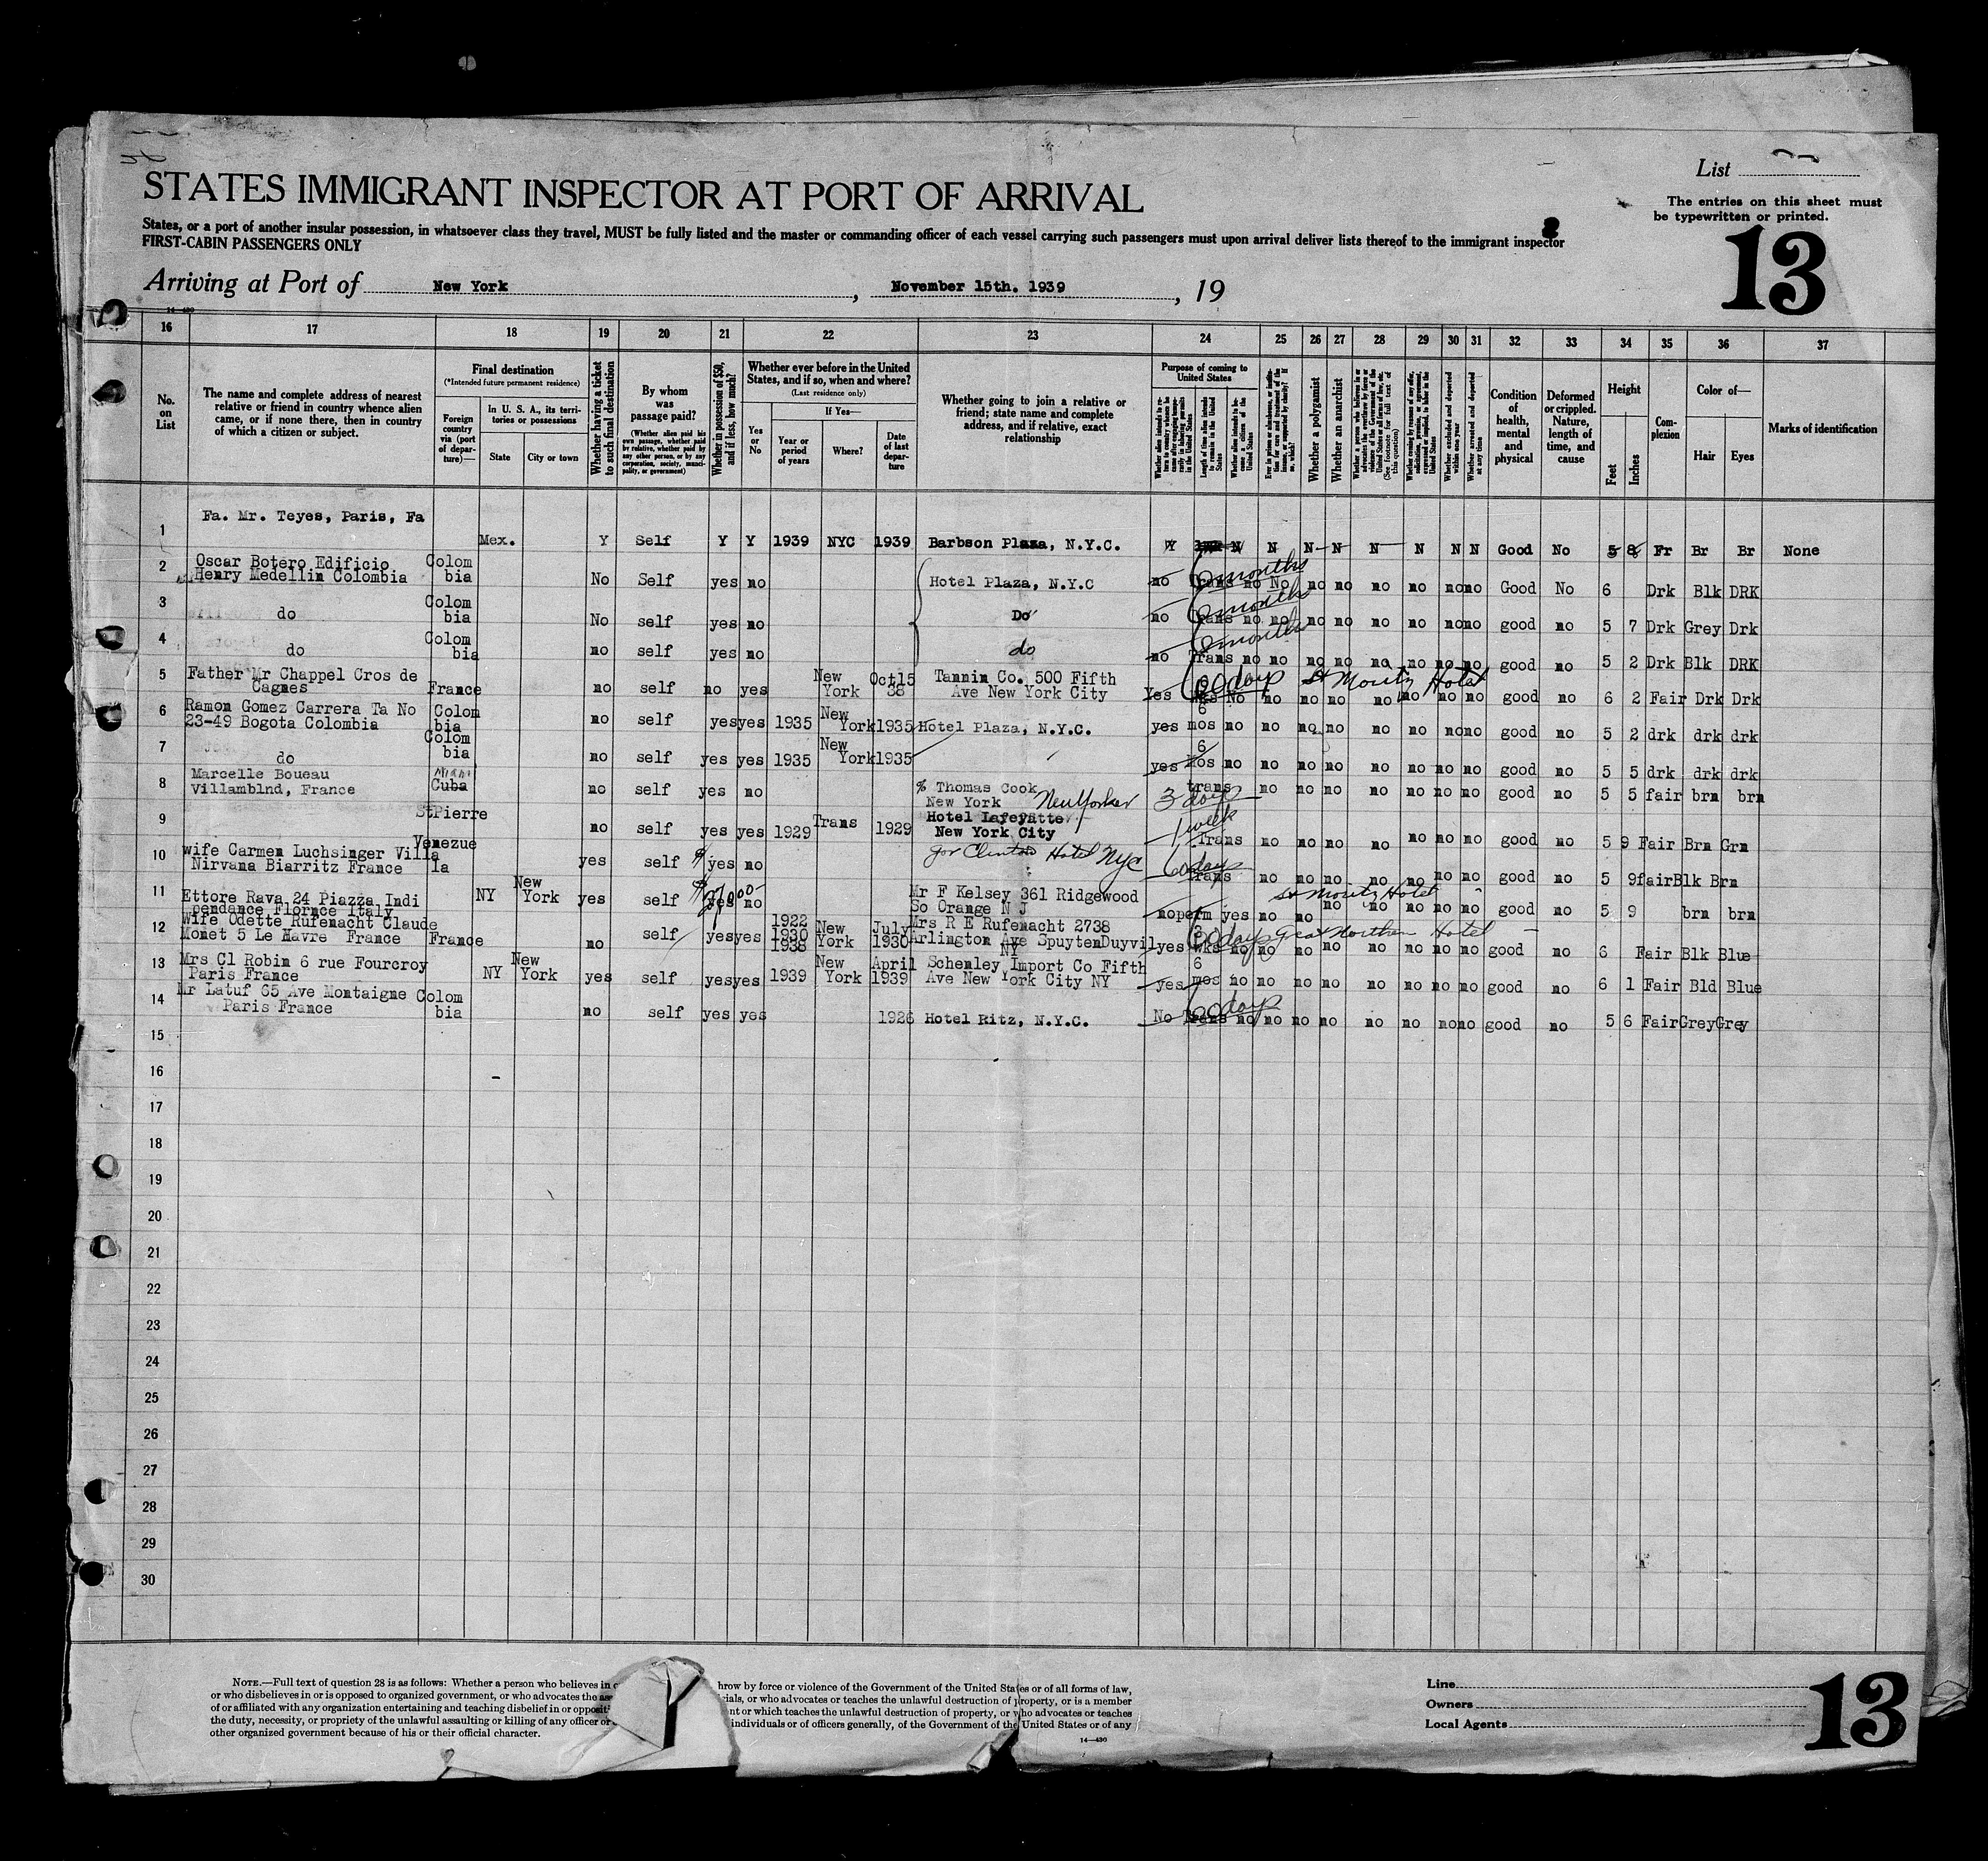 List
STATES IMMIGRANT INSPECTOR AT PORT OF ARRIVAL
The entries on this sheet must
be typewritten or printed.
States, or a port of another insular possession, in whatsoever class they travel, MUST be fully listed and the master or commanding officer of each vessel carrying such passengers must upon arrival deliver lists thereof to the immigrant inspector
FIRST-CABIN PASSENGERS ONLY
13
Arriving at Port of New York, November 15th. 1939, 19
14—430
16 17 18 19 20 21 22 23 24 25 26 27 28 29 30 31 32 33 34 35 36 37
No. on List
The name and complete address of nearest
relative or friend in country whence alien
came, or if none there, then in country
of which a citizen or subject.
Final destination
(*Intended future permanent residence)
Foreign country via (port of departure)—
In U. S. A., its territories or possessions
State
City or town
Whether having a ticket to such final destination
By whom was passage paid?
(Whether alien paid his own passage, whether paid by relative, whether paid by any other person, or by any corporation, society, municipality, or government)
Whether in possession of $50, and if less, how much?
Whether ever before in the United States, and if so, when and where?
(Last residence only)
Yes or No
If Yes—
Year or period of years
Where?
Date of last departure
Whether going to join a relative or
friend; state name and complete
address, and if relative, exact
relationship
Purpose of coming to United States
Length of time alien intends to remain in the United States
Whether alien intends to become a citizen of the United States
Whether a polygamist
Whether an anarchist
(See footnote for full text of this question)
Whether excluded and deported within one year
Whether arrested and deported at any time
Condition of health, mental and physical
Deformed or crippled. Nature, length of time, and cause
Height
Feet
Inches
Complexion
Color of—
Hair
Eyes
Marks of identification
1 Fa. Mr. Teyes, Paris, Fa
Mex. Y Self Y Y 1939 NYC 1939 Barbson Plaza, N.Y.C. Y N N N N N N N N Good No 5 8 Fr Br Br None
2 Oscar Botero Edificio Colom
Henry Medellin Colombia bia No Self yes no Hotel Plaza, N.Y.C no Trans 6 months no No no no no no no no Good No 6 Drk Blk DRK
3 do Colom
bia No self yes no Do no Trans 6 months no no no no no no no no good no 5 7 Drk Grey Drk
4 do Colom
bia no self yes no do no Trans 6 months no no no no no no no no good no 5 2 Drk Blk DRK
5 Father Mr Chappel Cros de
Cagnes France no self no yes New York Oct 15 38 Tannin Co. 500 Fifth
Ave New York City Yes 60 days St Moritz Hotel No no no no no no no no good no 6 2 Fair Drk Drk
6 Ramon Gomez Carrera Ta No Colom
23-49 Bogota Colombia bia no self yes yes 1935 New York 1935 Hotel Plaza, N.Y.C. yes 6 mos no no no no no no no no good no 5 2 drk drk drk
7 do Colom
bia no self yes yes 1935 New York 1935 yes 6 mos no no no no no no no no good no 5 5 drk drk drk
8 Marcelle Boueau Miami
Villamblnd, France Cuba no self yes no % Thomas Cook
New York New Yorker trans 3 days no no no no no no no good no 5 5 fair brn brn
9 St Pierre no self yes yes 1929 Trans 1929 Hotel Lafeyatte
New York City 1 week Trans no no no no no no no good no 5 9 Fair Brn Grn
10 wife Carmen Luchsinger Villa Venezue
Nirvana Biarritz France la yes self yes no Gov Clinton Hotel NYC 60 days Trans no no no no no no no good no 5 9 fair Blk Brn
St Moritz Hotel
11 Ettore Rava 24 Piazza Indi
pendance Flornce Italy NY New York yes self yes no Mr F Kelsey 361 Ridgewood
So Orange N J no perm yes no no no no no no no good no 5 9 brn brn
12 Wife Odette Rufenacht Claude
Monet 5 Le Havre France France no self yes yes 1922 1930 1938 New York July 1930 Mrs R E Rufenacht 2738
Arlington Ave SpuytenDuyvil
NY yes wks 60 days Great Northern Hotel no no no no no no no no good no 6 Fair Blk Blue
13 Mrs Cl Robin 6 rue Fourcroy
Paris France NY New York yes self yes yes 1939 New York April 1939 Schenley Import Co Fifth
Ave New York City NY yes 6 mos no no no no no no no no good no 6 1 Fair Bld Blue
14 Mr Latuf 65 Ave Montaigne Colom
Paris France bia no self yes yes 1926 Hotel Ritz, N.Y.C. No Trans 60 days no no no no no no no no good no 5 6 Fair Grey Grey
15
16
17
18
19
20
21
22
23
24
25
26
27
28
29
30
NOTE.—Full text of question 28 is as follows: Whether a person who believes in hrow by force or violence of the Government of the United States or of all forms of law,
or who disbelieves in or is opposed to organized government, or who advocates the cials, or who advocates or teaches the unlawful destruction of property, or is a member
of or affiliated with any organization entertaining and teaching disbelief in or nt or which teaches the unlawful destruction of property, or who advocates or teaches
the duty, necessity, or propriety of the unlawful assaulting or killing of any officer or individuals or of officers generally, of the Government of the United States or of any
other organized government because of his or their official character.
14—430
Line
Owners
Local Agents
13